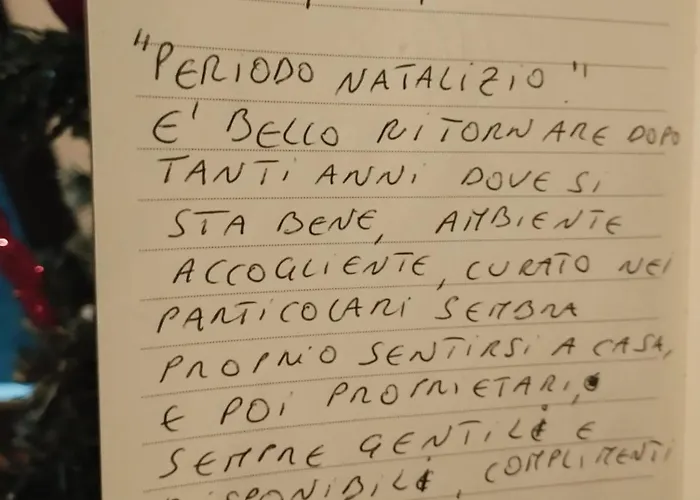 "PERIODO NATALIZIO"
E' BELLO RITORNARE DOPO
TANTI ANNI DOVE SI
STA BENE, AMBIENTE
ACCOGLIENTE, CURATO NEI
PARTICOLARI SEMBRA
PROPRIO SENTIRSI A CASA,
E POI PROPRIETARI,
SEMPRE GENTILI E
DISPONIBILI, COMPLIMENTI